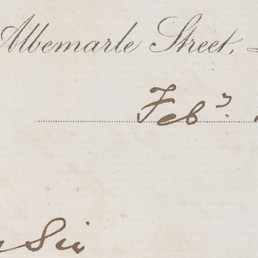 Albemarle Street,
Feby
Sir